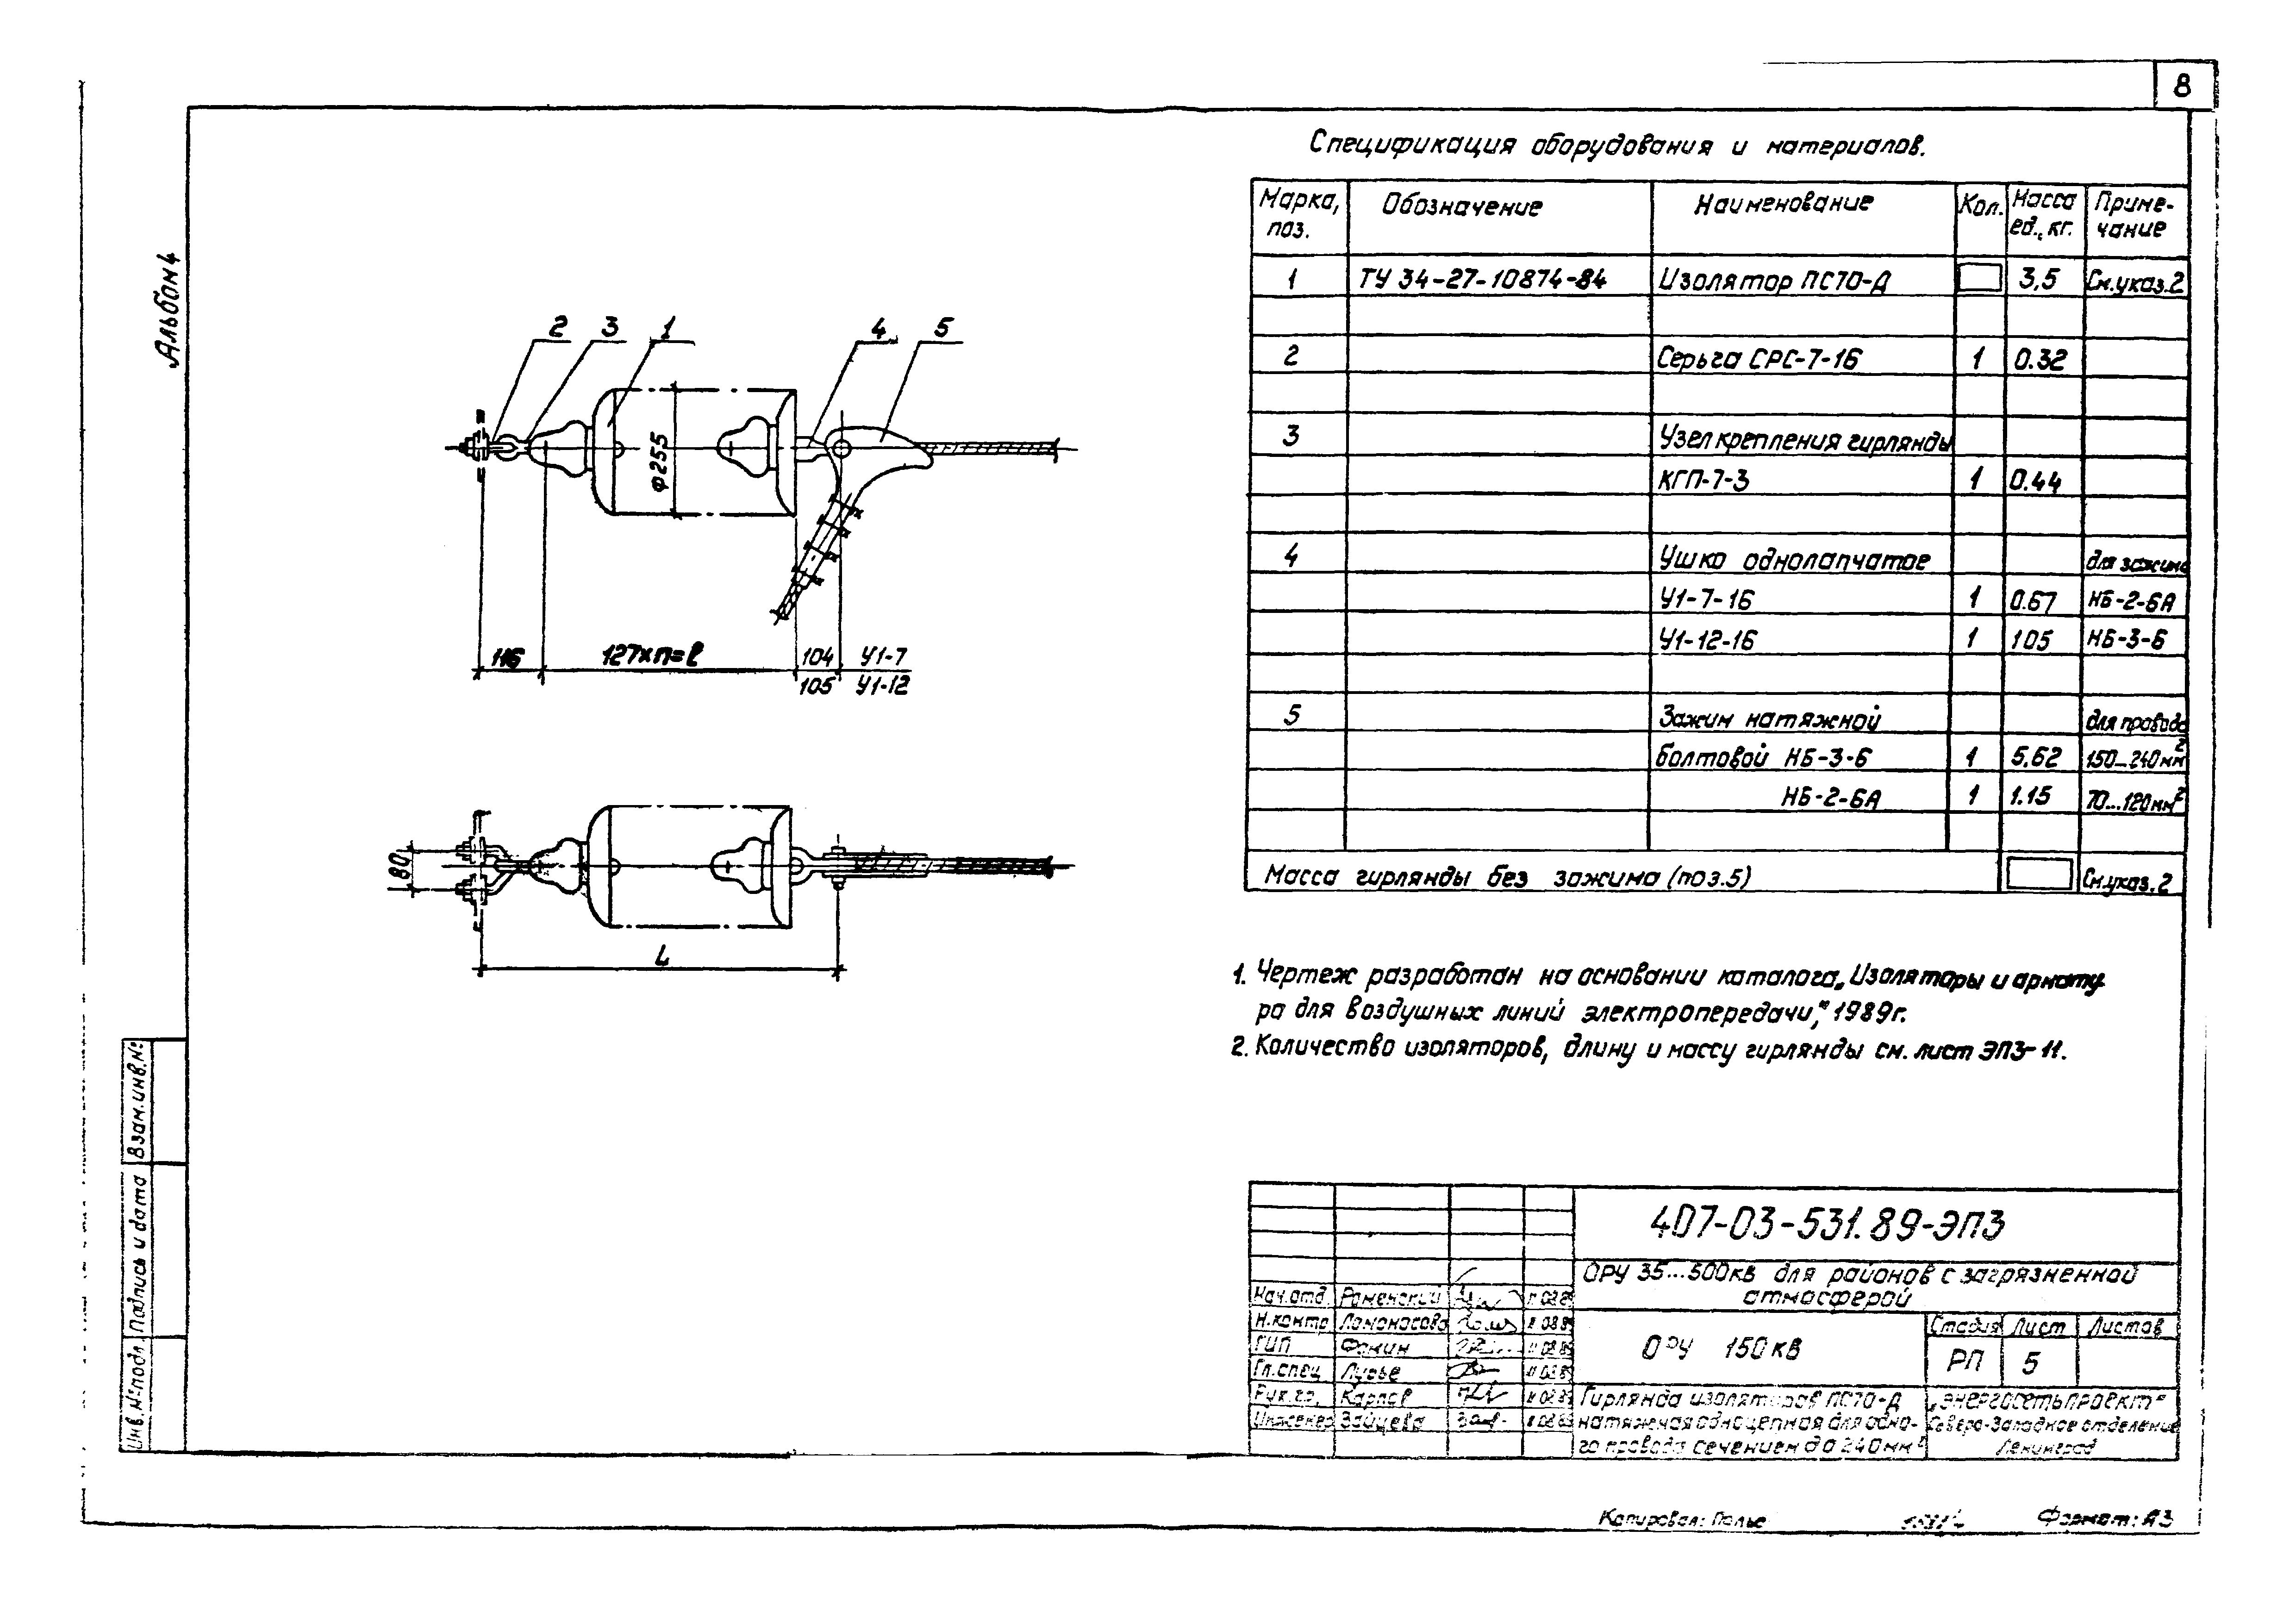 8
Альбом 4
Спецификация оборудования и материалов.
Марка, поз. Обозначение Наименование Кол. Масса ед., кг. Приме-чание
1 ТУ 34-27-10874-84 Изолятор ПС70-Д 3,5 См.указ.2
2 Серьга СРС-7-16 1 0.32
3 Узел крепления гирлянды
КГП-7-3 1 0.44
4 Ушко однолапчатое для зажима
У1-7-16 1 0.67 НБ-2-6А
У1-12-16 1 105 НБ-3-6
5 Зажим натяжной для провода
болтовой НБ-3-6 1 5.62 150...240мм²
НБ-2-6А 1 1.15 70...120мм²
Масса гирлянды без зажима (поз.5) См.указ.2
2 3 1 4 5
Ф255
116 127хп=ℓ 104 У1-7
105 У1-12
80
L
1. Чертеж разработан на основании каталога „Изоляторы и армату
ра для воздушных линий электропередачи," 1989г.
2. Количество изоляторов, длину и массу гирлянды см. лист ЭПЗ-11.
Взам.инв.№
Подпись и дата
Инв.№подл.
407-03-531.89-ЭПЗ
ОРУ 35...500кв для районов с загрязненной
атмосферой
Нач.отд. Роменский
Н.контр Ломоносова
ГИП Фомин
Гл.спец Лурье
Рук.гр. Карпов
Инженер Зайцева
ОРУ 150 кв
Стадия Лист Листов
РП 5
Гирлянда изоляторов ПС70-Д
натяжная одноцепная для одно-
го провода сечением до 240мм²
„Энергосетьпроект"
Северо-Западное отделение
Ленинград
Копировал: Полье
Формат: А3